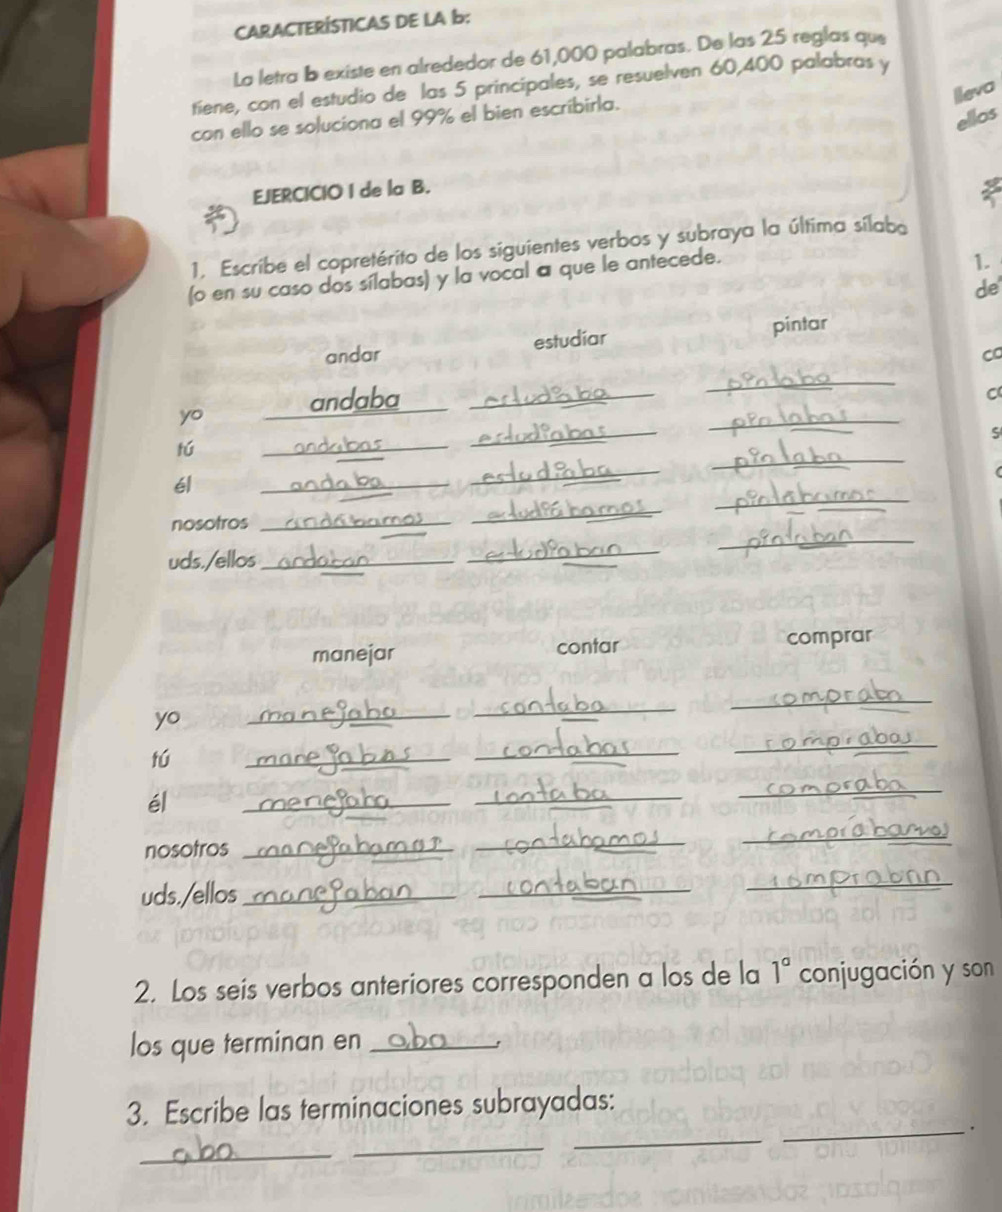 CARACTERÍSTICAS DE LA b:
La letra b existe en alrededor de 61,000 palabras. De las 25 reglas que
tiene, con el estudio de las 5 principales, se resuelven 60,400 palabras y
con ello se soluciona el 99% el bien escribirla.
lleva
ellas
EJERCICIO I de la B.
1. Escribe el copretérito de los siguientes verbos y subraya la última sílaba
(o en su caso dos sílabas) y la vocal a que le antecede.
1.
de
andar estudiar pintar
co
yo andaba estudiaba pintaba
tú andabas estudiabas pintabas
él andaba estudiaba pintaba
nosotros andábamos estudiábamos pintabamos
uds./ellos andaban estudiaban pintaban
manejar contar comprar
yo manejaba contaba compraba
tú manejabas contabas comprabas
él menejaba contaba compraba
nosotros manejabamos contabamos comprábamos
uds./ellos manejaban contaban compraban
2. Los seis verbos anteriores corresponden a los de la 1ª conjugación y son
los que terminan en aba.
3. Escribe las terminaciones subrayadas:
aba